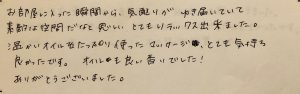 お部屋に入った瞬間から、気配りがゆき届いていて
素敵な空間だなぁと感じ、とてもリラックス出来ました。
温かいオイルをたっぷり使ったマッサージ、とても気持ち
良かったです。オイルも良い香りでした！
ありがとうございました。